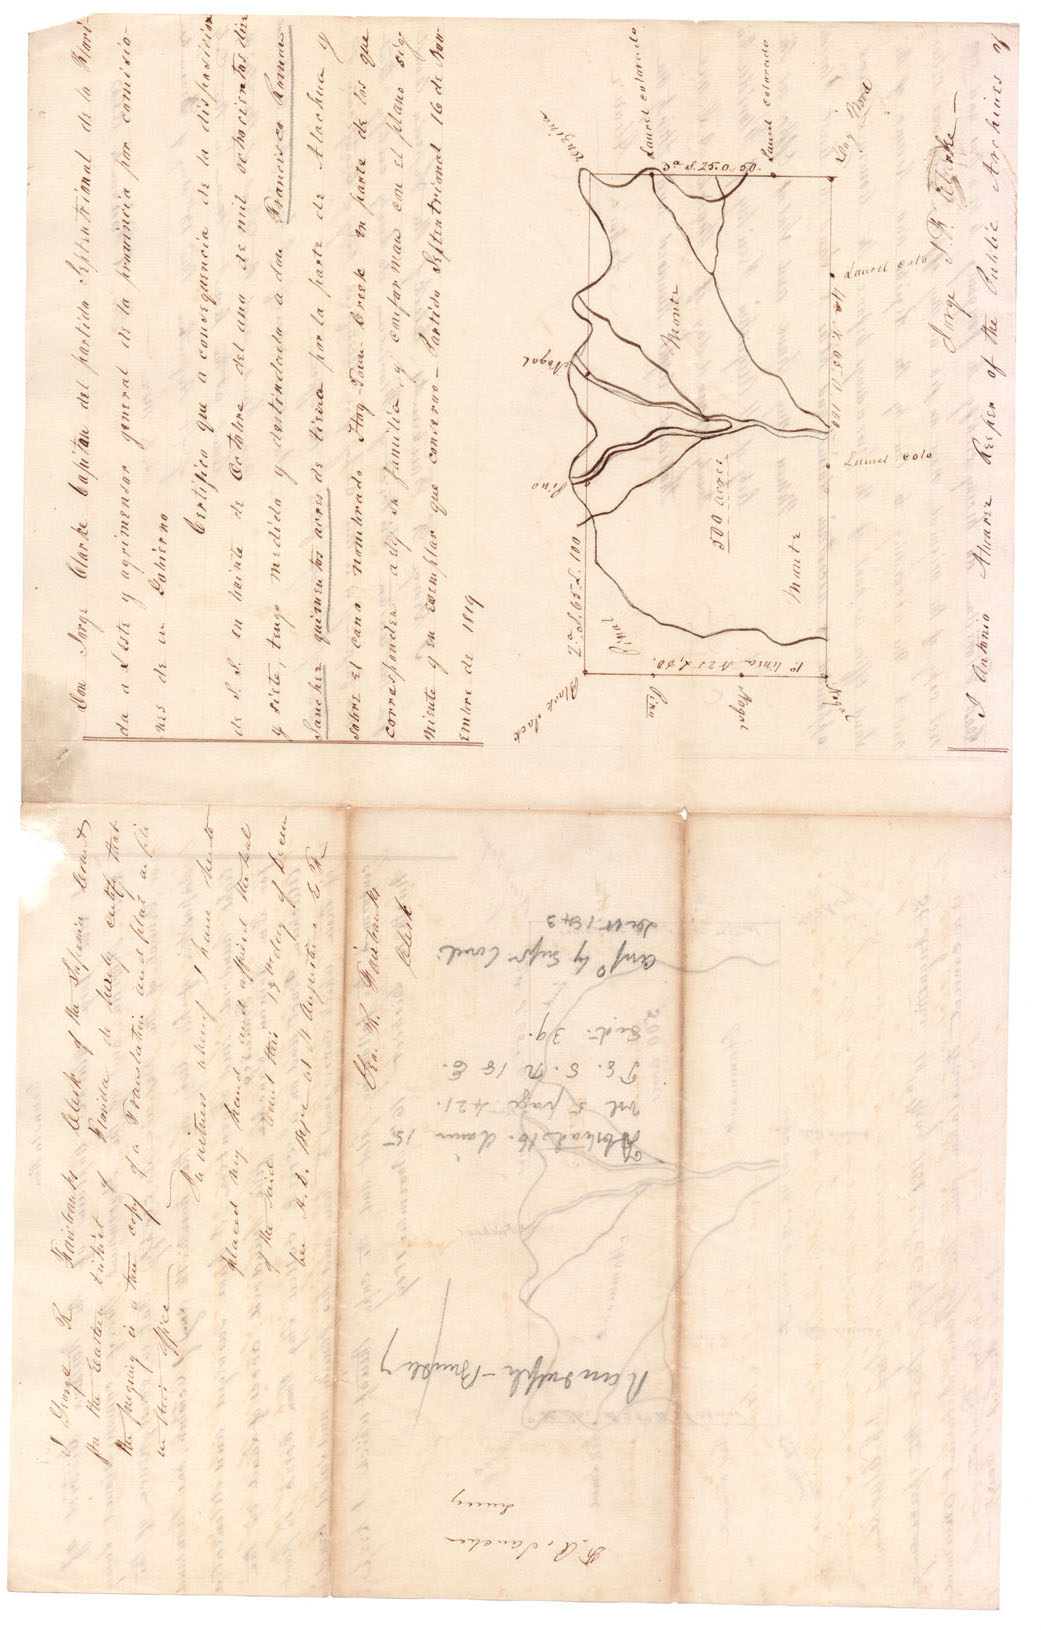 Don Jorge Clarke Capitan del partido Septentrional de la Flori-
da a Este y agrimensor general de la provincia por comisio-
nes de su Gobierno
Certifico que a consequencia de la disposicion
de S. S. en veinte de Octubre del ano de mil ochocientos diez
y siete, tengo medida y deslindado a don Francisco Roman
Sanchez quinientos acres de tierra por la parte de Alachua y
sobre el cano nombrado Hog-Town Creek en parte de los que
corresponden a el y su familia, y conforman con el plano sig-
niente y su exemplar que conservo - Partido Septentrional 16 de Nov-
embre de 1819
Laurel colorado
Laurel colorado
Hog
Nogal
Pino
Monte
500 acres
Monte
Laurel colo
Laurel colo
2a S. 65 E. 100
4a N. 65 O. 100
1a linea N 25 E, 50.
Pinar
Black Jack
Pino
Nogal
Jorge J. F. Clarke
I Antonio Alvarez Keeper of the Public Archives of
I George R Fairbanks Clerk of the Superior Court
for the Eastern District of Florida do hereby certify that
the foregoing is a true copy of a Translation and plat on file
in this office
In witness whereof I have hereto
placed my hand and affixed the seal
of the said Court this 19th day of Decem
ber A.D. at St Augustine E. F.
Geo. R. Fairbanks
Clerk
Claim 15
Vol 5 page 421.
S. R 18 E.
Sect. 39.
Conf'd by Supr Court
1843
F. R. Sanchez
Survey